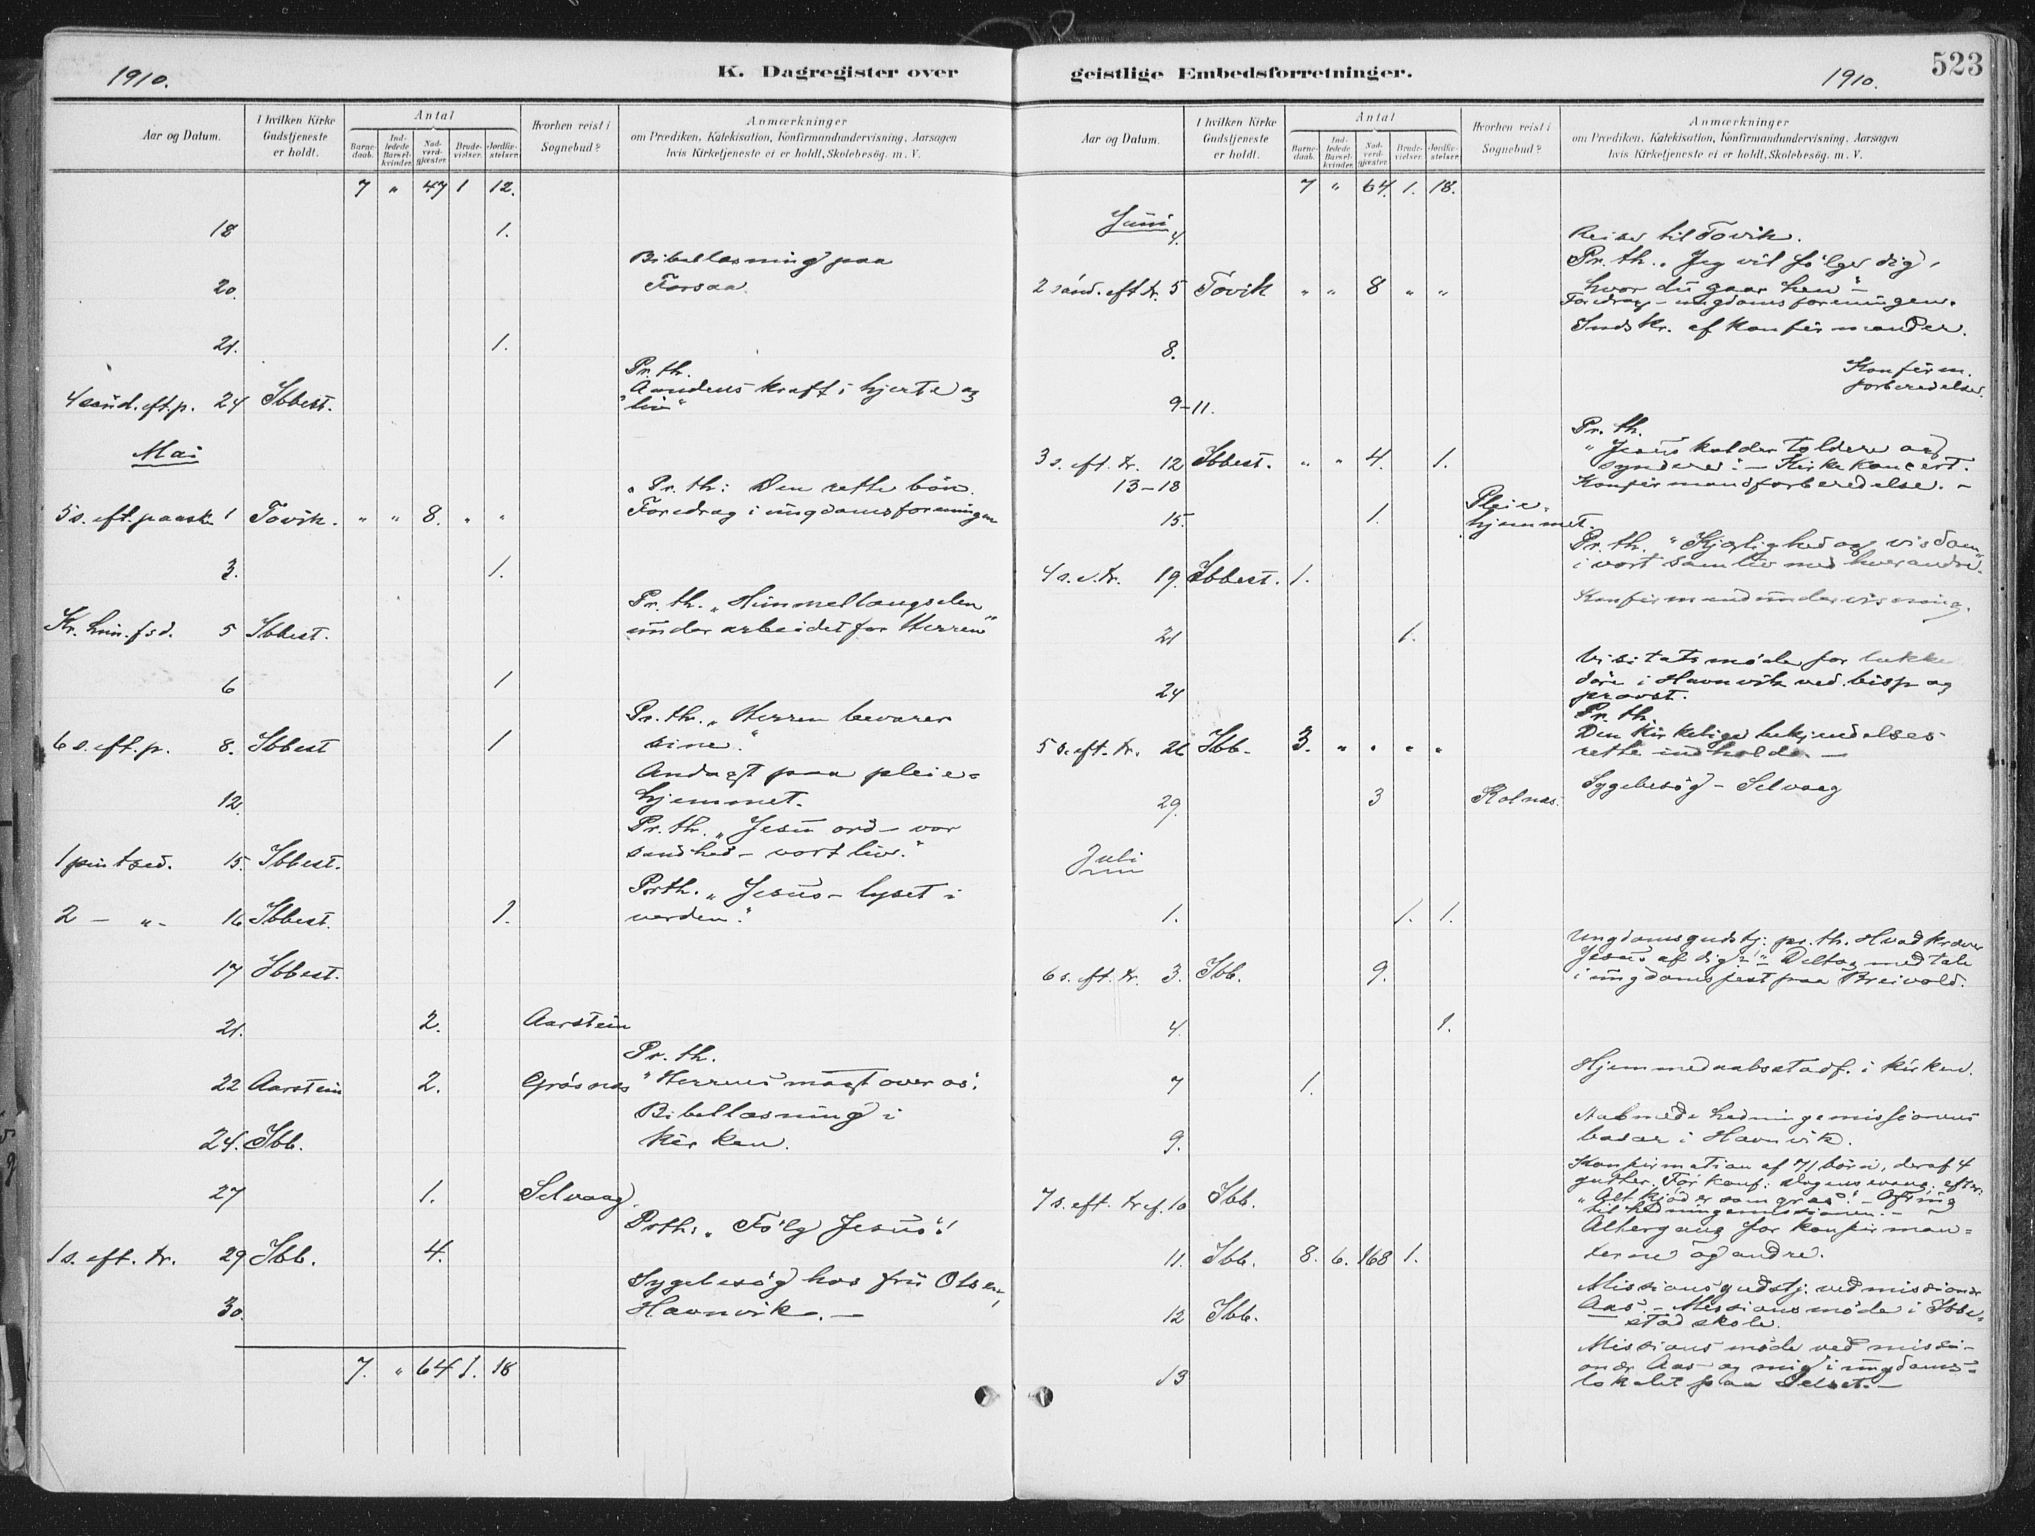 1910.
K. Dagregister over
Aar og Datum.
I hvilken Kirke Gudstjeneste er holdt.
Antal
Barne-daab.
Ind-ledede Barsel-kvinder.
Nad-verd-gjæster.
Brude-vielser.
Jordfæ-stelser.
Hvorhen reist i Sognebud?
Anmærkninger
om Prædiken, Katekisation, Konfirmandundervisning, Aarsagen
hvis Kirketjeneste ei er holdt, Skolebesøg. m. V.
7 " 47 1 12.
18 1.
Bibellæsning paa
20. Forsaa.
21. 1.
Pr. th.
"Aandens kraft i hjerte og
4 sønd. eft. p. 24 Ibbest. liv"
Mai
"Pr. th: Den rette bön.
5 s. eft. paaske 1 Tovik. " " 8. " " Foredrag i ungdomsforeningen
3. 1.
Pr. th. "Himmellængselen
Kr. him. fsd. 5 Ibbest. under arbeidet for Herren"
6 1
Pr. th. "Herren bevarer
6 s. eft. p. 8. Ibbest 1 sine."
Andagt paa pleie-
12. hjemmet.
Pr. th. "Jesu ord - vor
1 pintsed. 15. Ibbest. sandhed - vort liv."
Pr. th. "Jesus - lyset i
2 - " - 16 Ibbest. 1. verden."
17 Ibbest.
21. 2. Aarstein
Pr. th.
22 Aarstein 2. Gråsnes "Herrens magt over os".
Bibellæsning i
24. Ibb. kirken.
27 1. Selvaag.
Pr. th: "Følg Jesus"!
1 s. eft. tr. 29 Ibb. 4.
Sygebesøg hos fru Olsen,
30. Havnvik. -
7. " 64 1. 18
geistlige Embedsforretninger.
1910.
523
Aar og Datum.
I hvilken Kirke Gudstjeneste er holdt.
Antal
Barne-daab.
Ind-ledede Barsel-kvinder.
Nad-verd-gjæster.
Brude-vielser.
Jordfæ-stelser.
Hvorhen reist i Sognebud?
Anmærkninger
om Prædiken, Katekisation, Konfirmandundervisning, Aarsagen
hvis Kirketjeneste ei er holdt, Skolebesøg. m. V.
7 " 64. 1. 18.
Juni
4. Reise til Tovik.
Pr. th. "Jeg vil følge dig,
2 sönd. eft. tr. 5 Tovik " " 8 " " hvor du gaar hen" -
Foredrag - ungdomsforeningen.
Indskr. af konfirmander.
8.
Konfirm.
forberedelse.
9-11.
Pr. th.
"Jesus kalder toldere og
3 s. eft. tr. 12 Ibbest. " " 4. 1. syndere". - Kirkekoncert.
13-18 Konfirmandforberedelse. -
15. 1. Pleie-
hjemmet.
Pr. th. "Kjærlighed og visdom
4 s. e. tr. 19. Ibbest. 1. i vort samliv med hverandre.
Konfirmandundervisning.
21 1.
Visitatsmøde for lukke
24 döre i Havnvik ved bisp og
provst.
Pr. th.
5 s. eft. tr. 26 Ibb. 3. " " " " Den kirkelige bekjendelses
rette indhold. -
29. 3 Kolnes. Sygebesøg - Selvaag
Juli
1. 1. 1.
Ungdomsgudstj. pr. th. Hvad kræver
6 s. eft. tr. 3. Ibb. 9. Jesus af dig?" Deltog med tale
i ungdomsfest paa Breivold.
4. 1.
Hjemmedaabsstadf. i kirken.
7 1.
hedningemissionens
9. basar i Havnvik.
Konfirmation af 71 börn, deraf 4
7 s. eft. tr. 10 Ibb.
"Alt kjød er som græs". - Ofring
til hedningemissionen. -
Altergang for konfirman-
11. Ibb. 8. 6. 168 1. derne og andre.
Missionsgudstj. ved missionær
12 Ibb. Aas. - Missionsmøde i Ibbe-
stad skole.
Missionsmøde ved missi-
13 onær Aas og mig i ungdoms-
lokalet paa Selset. -